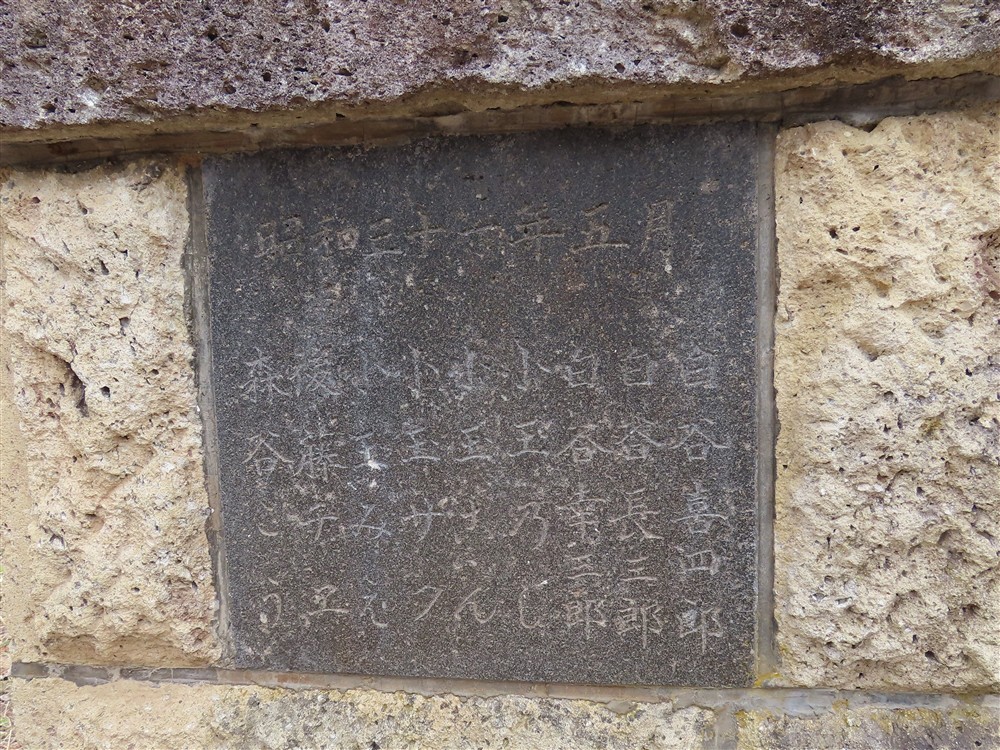 昭和三十六年五月
白谷喜四郎
白谷長三郎
白谷幸三郎
小玉乃し
小玉さん
小玉サク
小玉みど
後藤テ
森谷こう